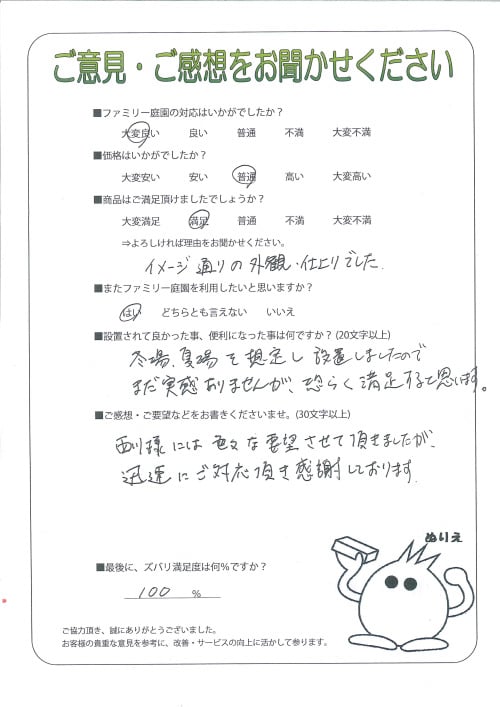 ご意見・ご感想をお聞かせください
■ファミリー庭園の対応はいかがでしたか？
大変良い 良い 普通 不満 大変不満
■価格はいかがでしたか？
大変安い 安い 普通 高い 大変高い
■商品はご満足頂けましたでしょうか？
大変満足 満足 普通 不満 大変不満
⇒よろしければ理由をお聞かせください。
イメージ通りの外観・仕上りでした.
■またファミリー庭園を利用したいと思いますか？
はい どちらとも言えない いいえ
■設置されて良かった事、便利になった事は何ですか？(20文字以上)
冬場、夏場を想定し設置しましたので
まだ実感ありませんが、恐らく満足すると思います。
■ご感想・ご要望などをお書きくださいませ。(30文字以上)
西川様には色々な要望させて頂きましたが、
迅速にご対応頂き感謝しております.
ぬりえ
■最後に、ズバリ満足度は何％ですか？
100 ％
ご協力頂き、誠にありがとうございました。
お客様の貴重な意見を参考に、改善・サービスの向上に活かして参ります。